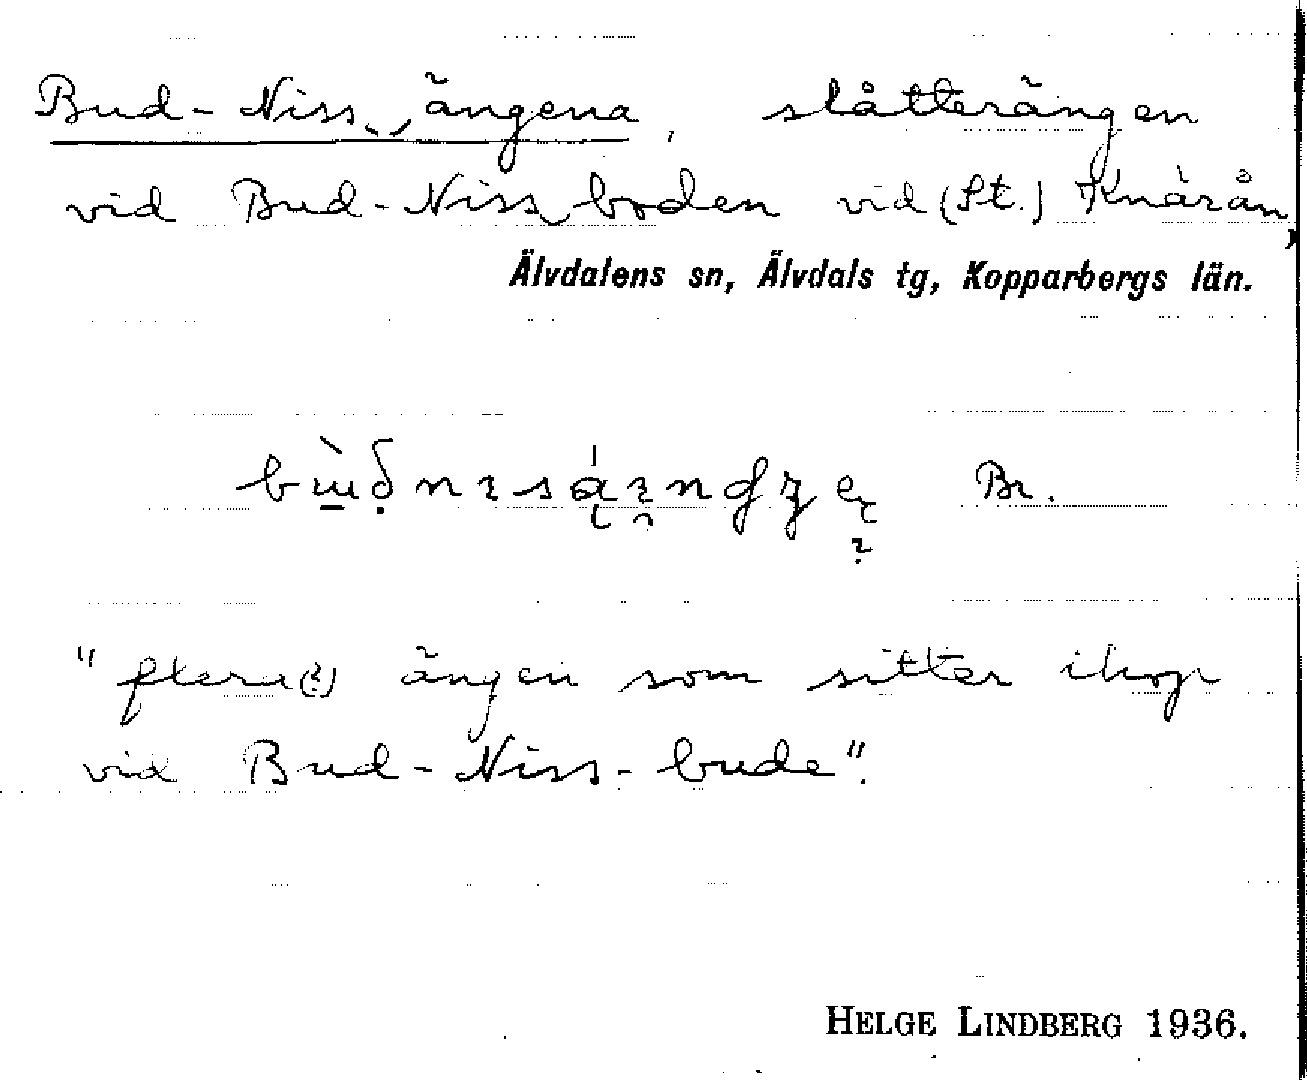 Bud-Niss‿ängena, slåtterängen
vid Bud-Niss‿boden vid (St.) Knärån,
Älvdalens sn, Älvdals tg, Kopparbergs län.
Br.
"flera(?) ängen som sitter ihop
vid Bud-Niss-bude".
HELGE LINDBERG 1936.